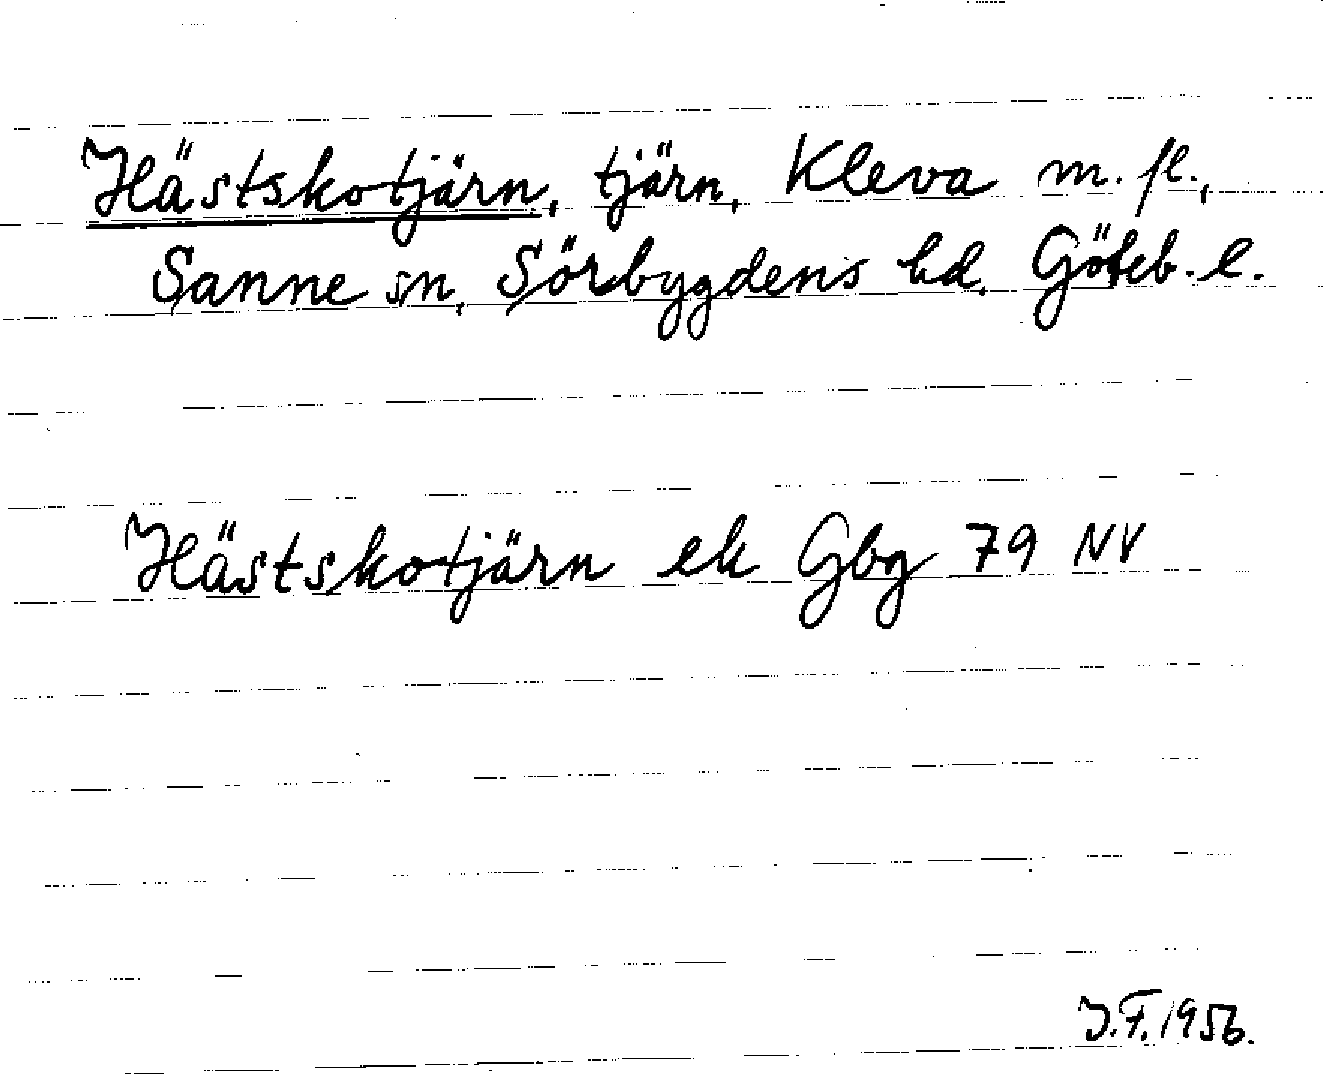 Hästskotjärn, tjärn, Kleva m. fl.,
Sanne sn, Sörbygdens hd. Göteb. l.
Hästskotjärn ek Gbg 79 NV
J.F. 1956.